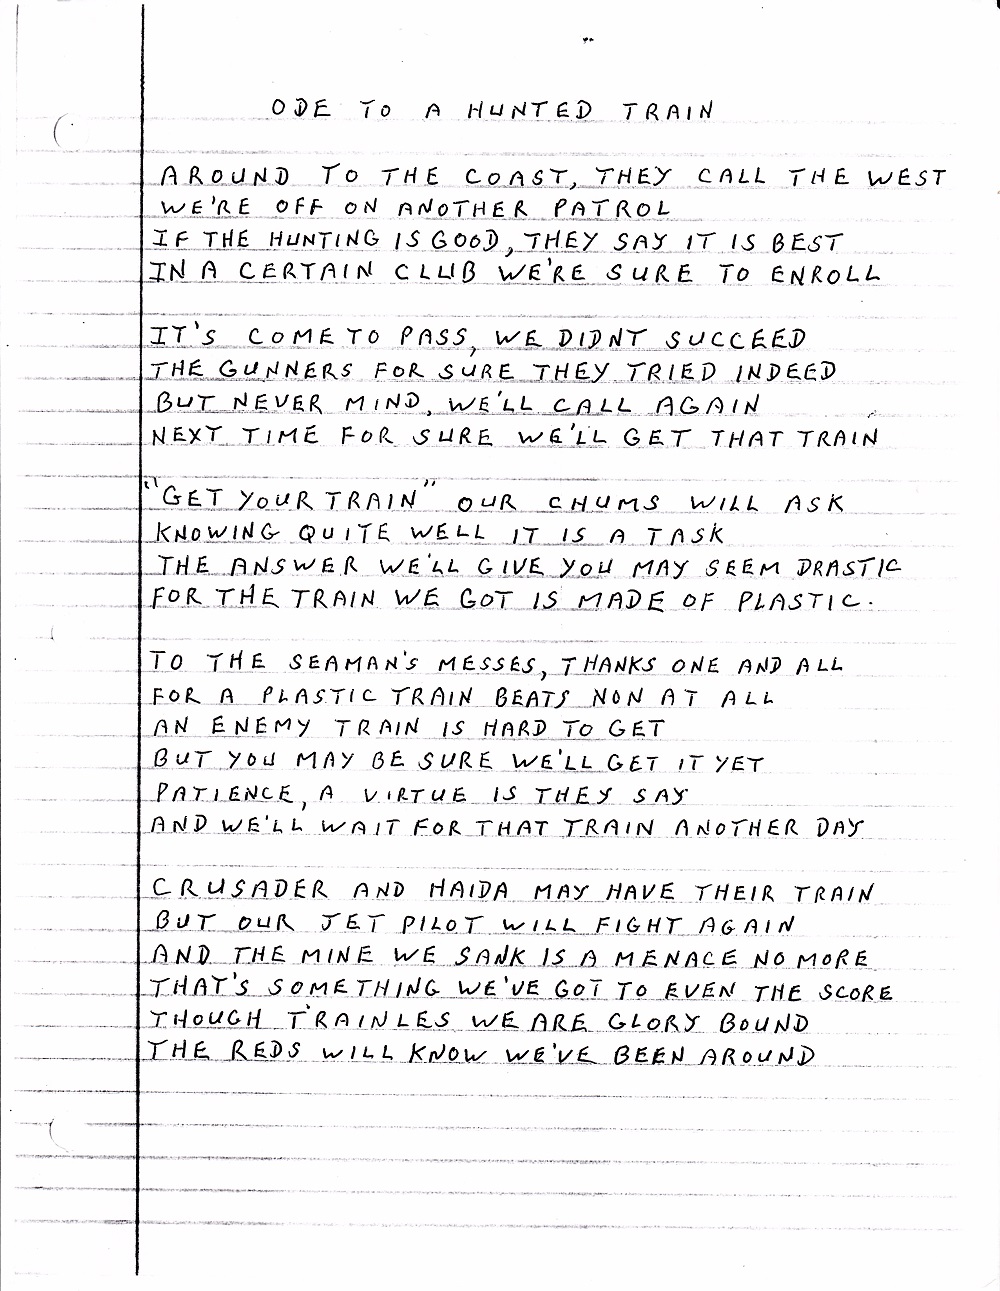 ODE TO A HUNTED TRAIN
AROUND TO THE COAST, THEY CALL THE WEST
WE'RE OFF ON ANOTHER PATROL
IF THE HUNTING IS GOOD, THEY SAY IT IS BEST
IN A CERTAIN CLUB WE'RE SURE TO ENROLL
IT'S COME TO PASS, WE DIDNT SUCCEED
THE GUNNERS FOR SURE THEY TRIED INDEED
BUT NEVER MIND, WE'LL CALL AGAIN
NEXT TIME FOR SURE WE'LL GET THAT TRAIN
"GET YOUR TRAIN" OUR CHUMS WILL ASK
KNOWING QUITE WELL IT IS A TASK
THE ANSWER WE'LL GIVE YOU MAY SEEM DRASTIC
FOR THE TRAIN WE GOT IS MADE OF PLASTIC.
TO THE SEAMAN'S MESSES, THANKS ONE AND ALL
FOR A PLASTIC TRAIN BEATS NON AT ALL
AN ENEMY TRAIN IS HARD TO GET
BUT YOU MAY BE SURE WE'LL GET IT YET
PATIENCE, A VIRTUE IS THEY SAY
AND WE'LL WAIT FOR THAT TRAIN ANOTHER DAY
CRUSADER AND HAIDA MAY HAVE THEIR TRAIN
BUT OUR JET PILOT WILL FIGHT AGAIN
AND THE MINE WE SANK IS A MENACE NO MORE
THAT'S SOMETHING WE'VE GOT TO EVEN THE SCORE
THOUGH TRAINLES WE ARE GLORY BOUND
THE REDS WILL KNOW WE'VE BEEN AROUND